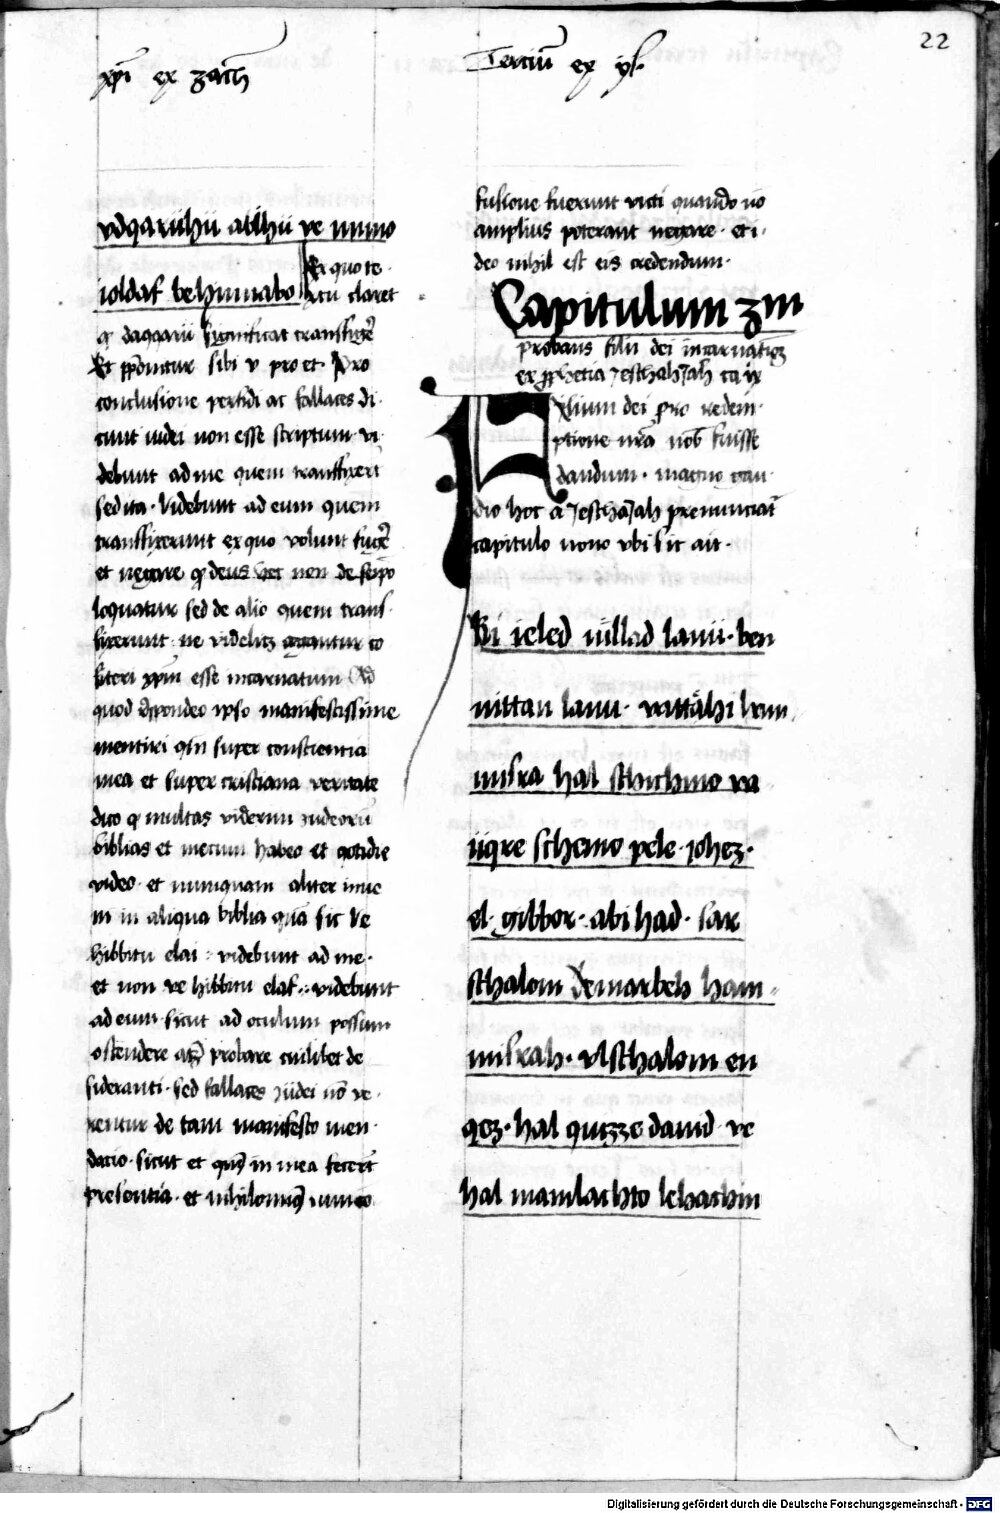 xpi ex zach
Tercium ex ys.
22
vdqariihii abihii ve immo
ioldaf behinnabo Ex quo te
xtu claret
q daqarii significat transfigere
Et producitur sibi v pro et. Pro
conclusione perfidi ac fallaces di
cunt iudei non esse scriptum vi
debunt ad me quem transfixerunt
sed ita. Videbunt ad eum quem
transfixerunt ex quo volunt fugere
et negare q deus hec non de seipo
loquatur sed de alio quem trans
fixerunt ne videlicet cogantur co
fiteri xpm esse incarnatum Ad
quod respondeo ipso manifestissime
mentiri qm super consciencia
mea et super cristiana veritate
dico q multas viderim iudeoru
biblias et mecum habeo et qotidie
video et numquam aliter inue
ni in aliqua biblia qua sic ve
hibbitu elai : videbunt ad me.
et non ve hibbitu elaf : videbunt
ad eum sicut ad oculum possum
ostendere atque probare cuilibet de
sideranti. sed fallaces iudei no ve
rentur de tam manifesto men
dacio. sicut et quidem in mea fecerunt
presentia. et nihilominus
fusione fuerunt victi quando no
amplius poterant negare. et i
deo nihil est eis credendum.
Capitulum 3m
probans filii dei incarnationem
ex prophetia Jeschahjah ca ix
Filium dei pro redem
ptione nra nob fuisse
dandum. magno gau
dio hoc a Jeschajah prenunciat
capitulo nono vbi sic ait.
Ki ieled iullad lanu. ben
nittan lanu. vattahi ham
misra hal schichmo va
iiqre schemo pele. johez.
el. gibbor. abi had. sar
schalom lemarbeh ham
misrah. vlschalom en
qez. hal quisse dauid ve
hal mamlachto lehachin
Digitalisierung gefördert durch die Deutsche Forschungsgemeinschaft - DFG